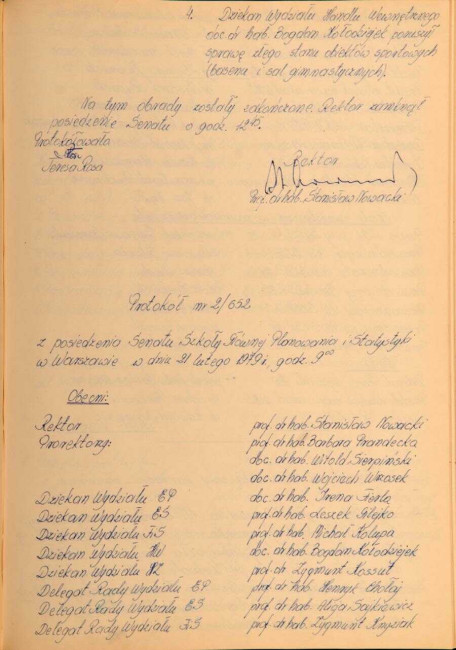 4. Dziekan Wydziału Handlu Wewnętrznego
doc. dr hab. Bogdan Kołodziejek poruszył
sprawę złego stanu obiektów sportowych
(basenu i sal gimnastycznych).
Na tym obrady zostały zakończone. Rektor zamknął
posiedzenie Senatu o godz. 12⁴⁵.
Protokołowała
Teresa Rosa
Rektor
Prof. dr hab. Stanisław Nowacki
Protokół nr 2/652
z posiedzenia Senatu Szkoły Głównej Planowania i Statystyki
w Warszawie w dniu 21 lutego 1979 r., godz. 9⁰⁰
Obecni:
Rektor prof. dr hab. Stanisław Nowacki
Prorektorzy: prof. dr hab. Barbara Prandecka
doc. dr hab. Witold Sierpiński
doc. dr hab. Wojciech Wrzosek
Dziekan Wydziału EP doc. dr hab. Irena
Dziekan Wydziału ES prof. dr hab. Leszek
Dziekan Wydziału FiS prof. dr hab. Michał Kolupa
Dziekan Wydziału HW doc. dr hab. Bogdan Kołodziejek
Dziekan Wydziału HZ prof. dr Zygmunt Kossut
Delegat Rady Wydziału EP prof. dr hab. Henryk Chołaj
Delegat Rady Wydziału ES prof. dr hab. Alicja Sajkiewicz
Delegat Rady Wydziału FiS prof. dr hab. Zygmunt Knyziak